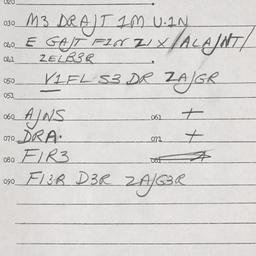 020
030 M3 DRAJT IM U.IN
040 E GAJT FIN ZIX/ALAJNT/
041 ZELB3R
050 V1FL S3 DR ZAJGR
051
060 AJNS 061 +
070 DRA. 071 +
080 FIR3 081
090 FI3R D3R ZAJG3R